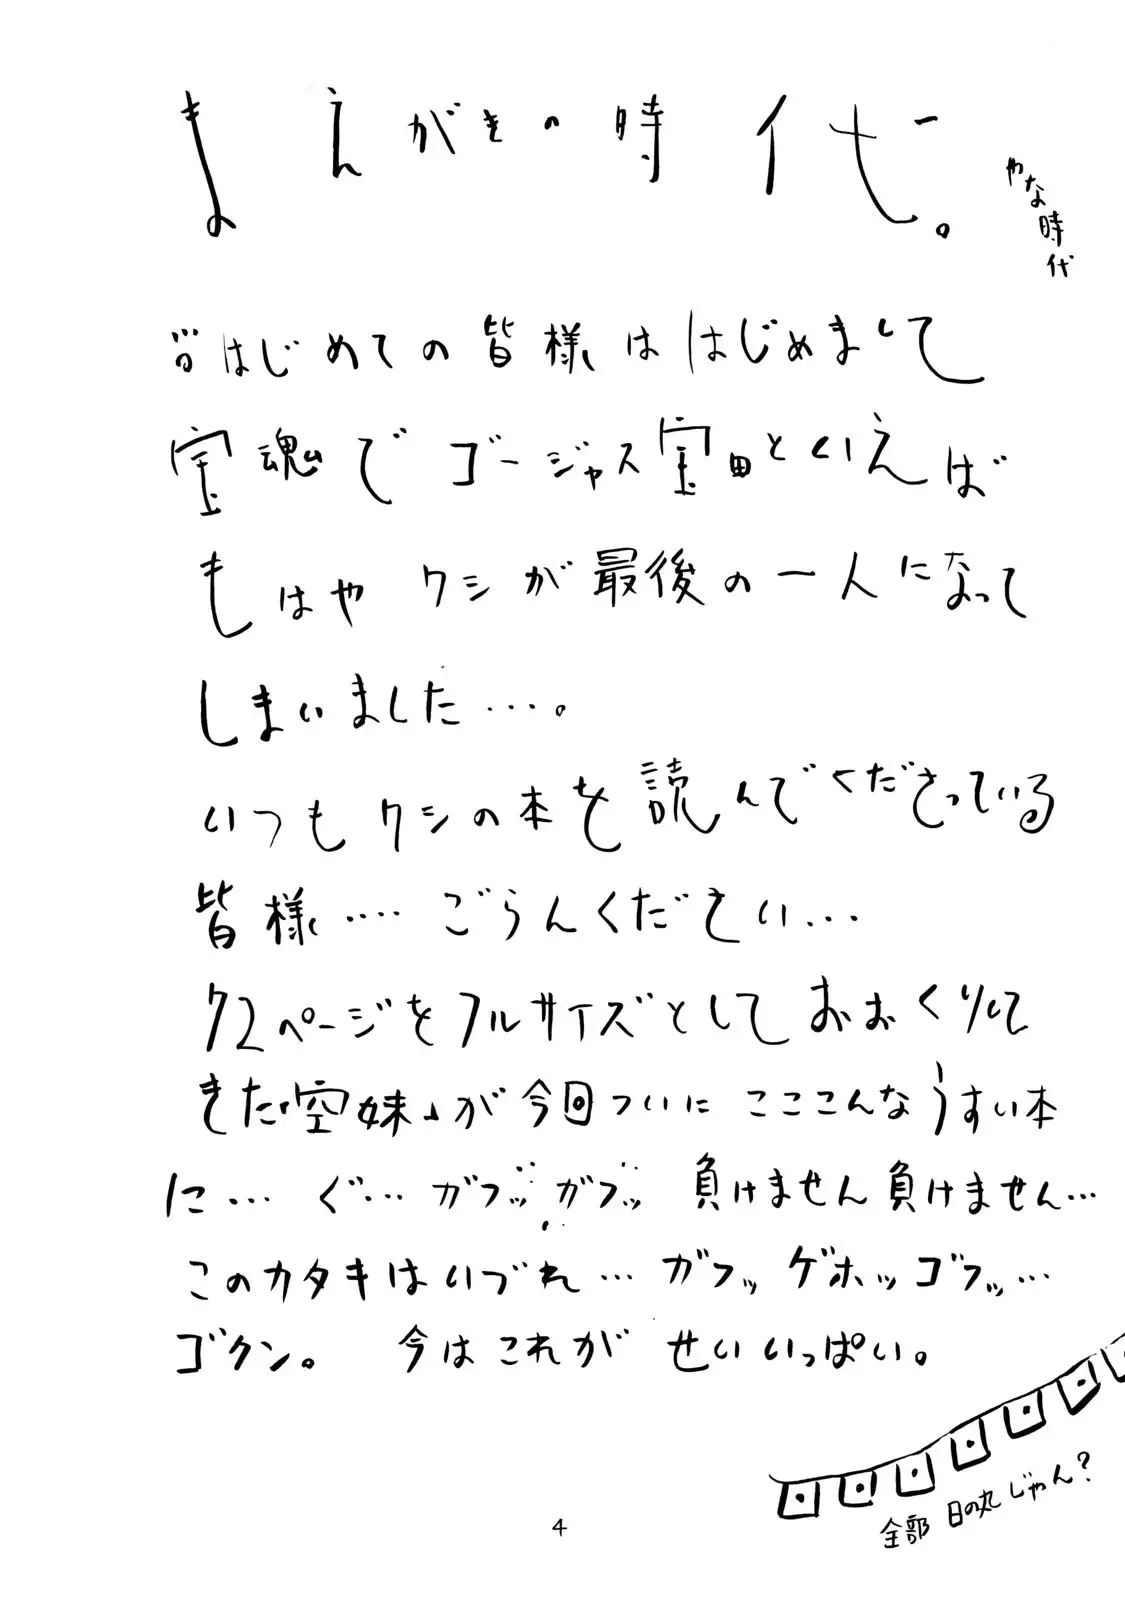 まえがきの時代。
やな時代
はじめての皆様ははじめまして
宝魂でゴージャス宝田といえば
もはやワシが最後の一人になって
しまいました…。
いつもワシの本を読んでくださっている
皆様‥‥ごらんください…
72ページをフルサイズとしておおくりして
きた「空妹」が今回ついにこここんなうすい本
に… ぐ… ガフッガフッ 負けません負けません…
このカタキはいづれ… ガフッ ゲホッゴフッ…
ゴクン。 今はこれが せいいっぱい。
全部 日の丸じゃん?
4